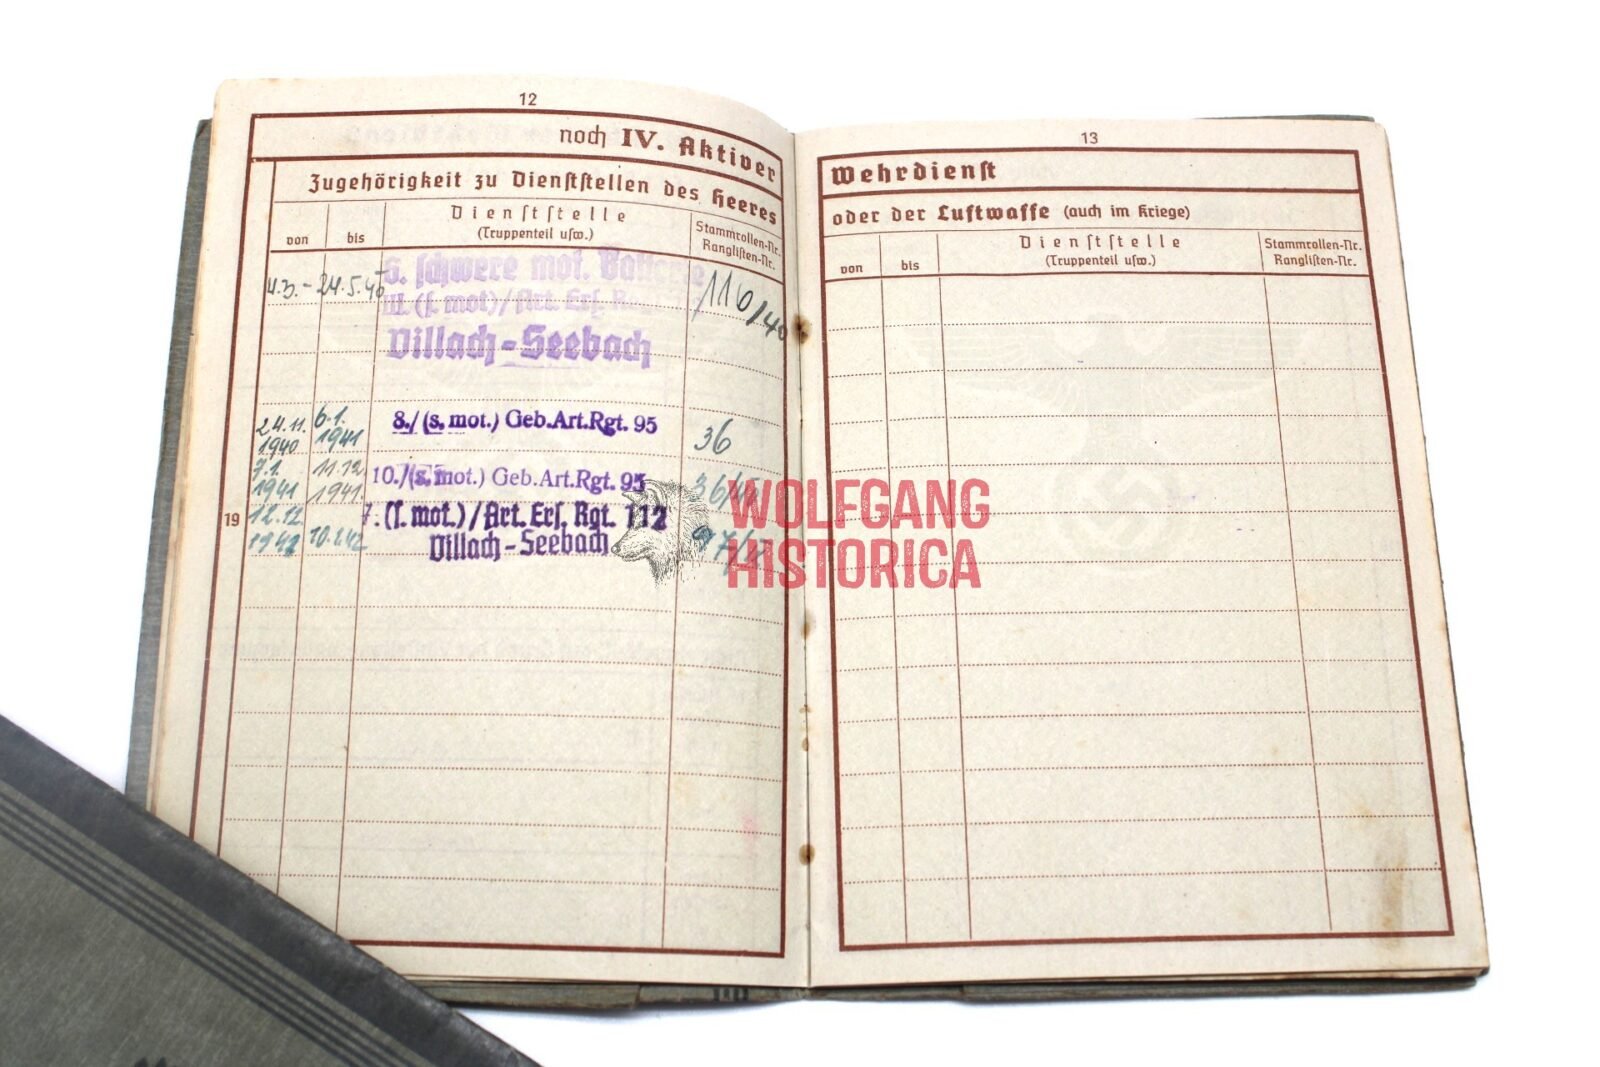 12
noch IV. Aktiver
Zugehörigkeit zu Dienststellen des Heeres
von
bis
Dienststelle
(Truppenteil usw.)
Stammrollen-Nr.
Ranglisten-Nr.
4.3. - 24.5.40
schwere mot. Batterie
III. (s. mot.) / Art. Ers. 
Villach-Seebach
116/40
24.11. 1940
6.1. 1941
8./(s. mot.) Geb.Art.Rgt. 95
36
7.1. 1941
11.12. 1941.
10./(s. mot.) Geb.Art.Rgt. 95
19
12.12.
7. (s. mot.) / Art. Ers. Rgt. 112
Villach-Seebach
WOLFGANG
HISTORICA
13
Wehrdienst
oder der Luftwaffe (auch im Kriege)
von
bis
Dienststelle
(Truppenteil usw.)
Stammrollen-Nr.
Ranglisten-Nr.